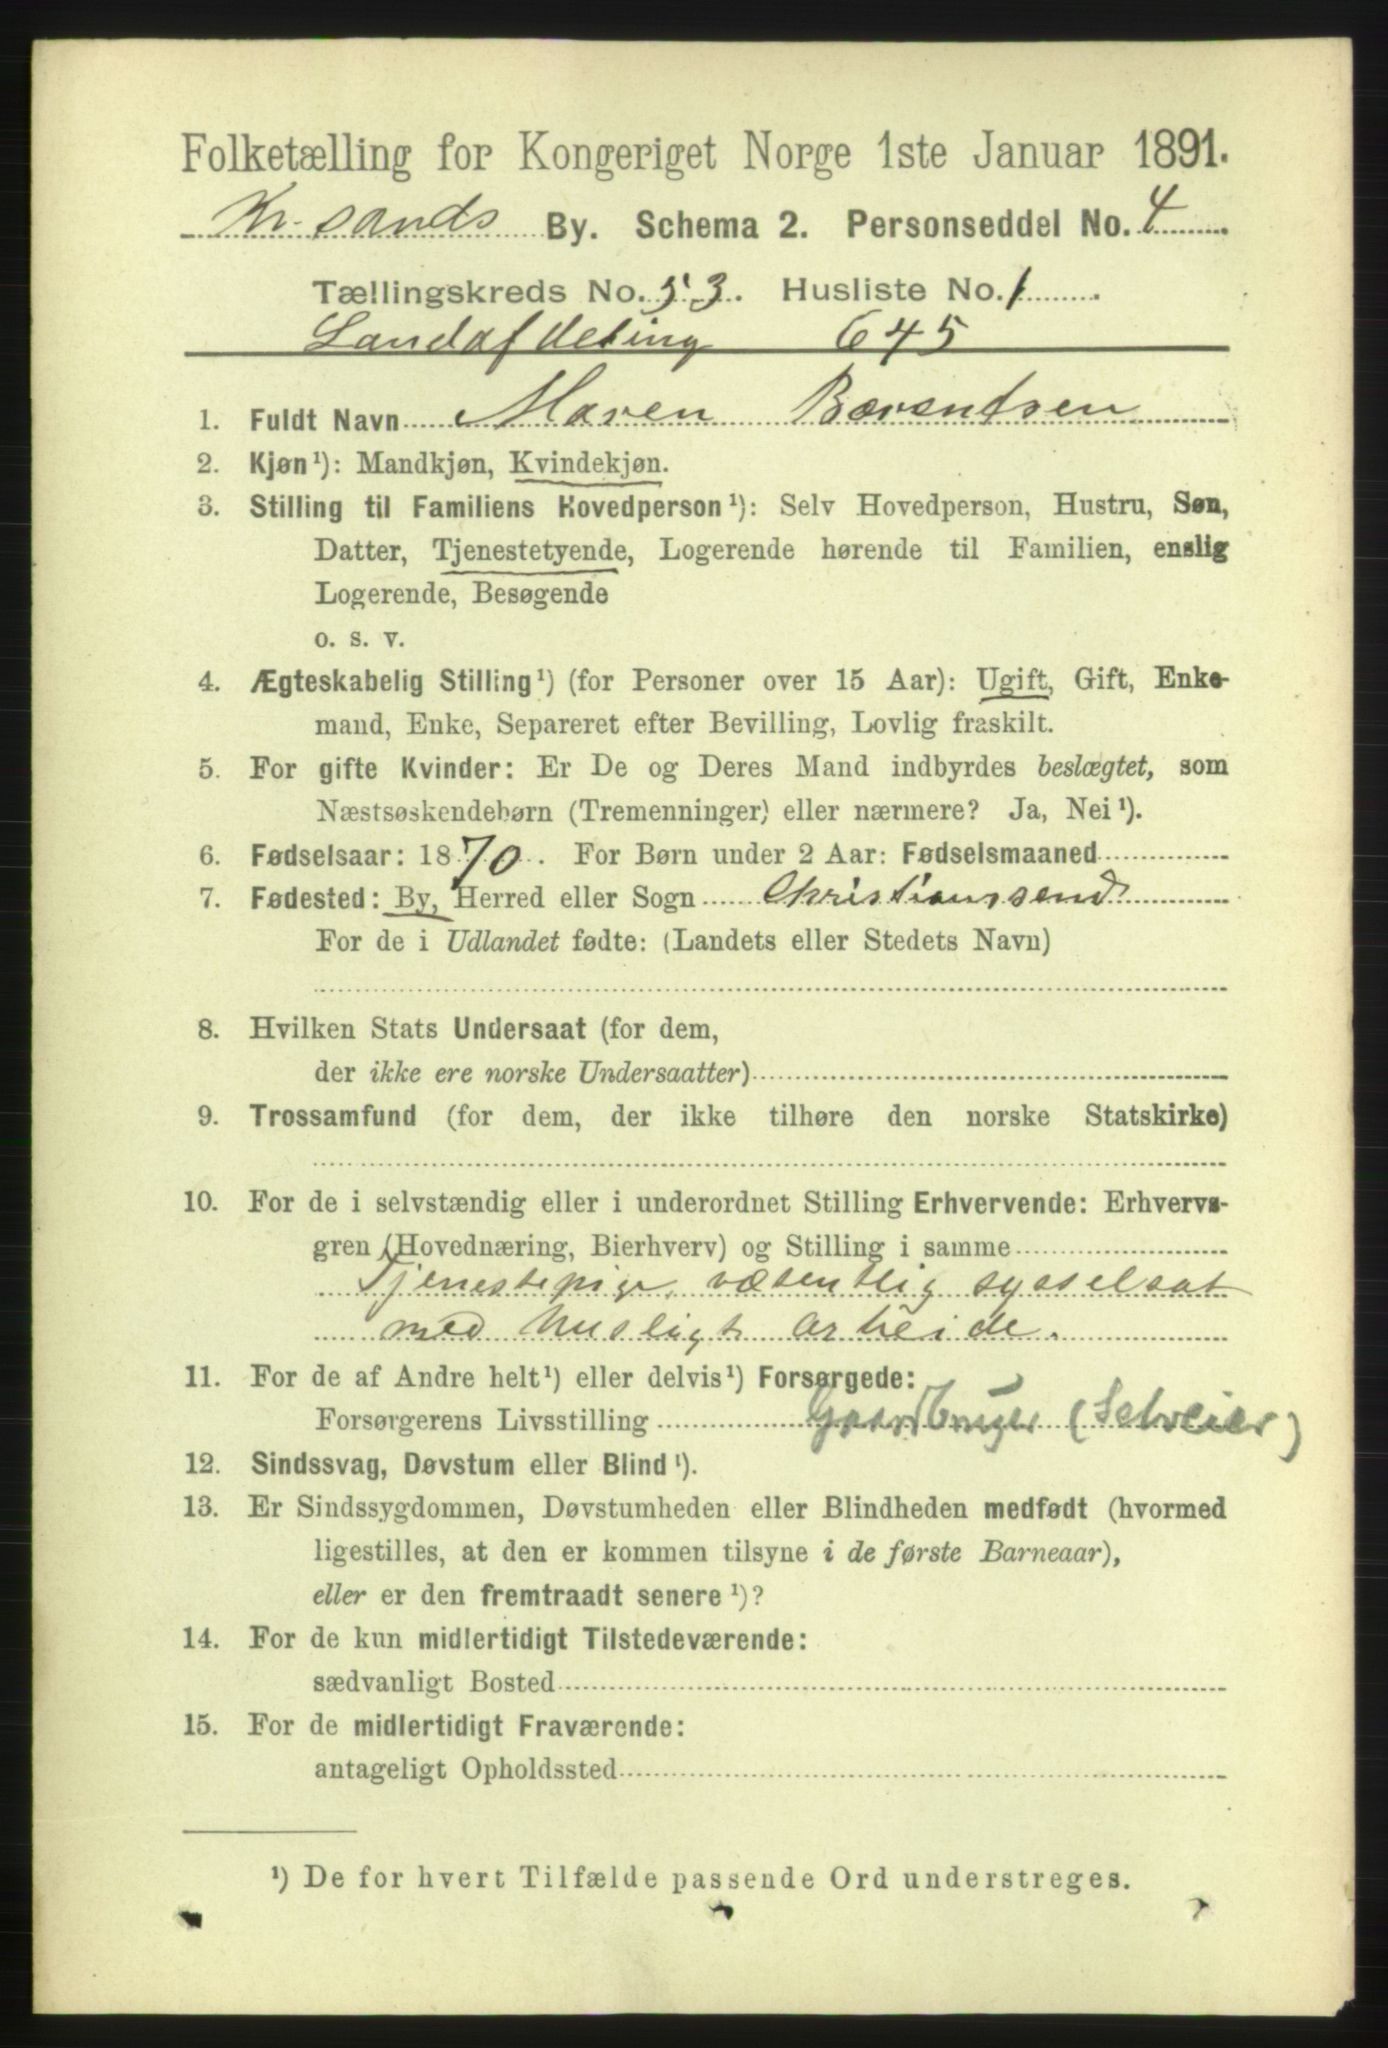 Folketælling for Kongeriget Norge 1ste Januar 1891.
Kr.sands By. Schema 2. Personseddel No. 4
Tællingskreds No. 53. Husliste No. 1
Landafdeling 645
1. Fuldt Navn Maren Bærentsen
2. Kjøn¹): Mandkjøn, Kvindekjøn.
3. Stilling til Familiens Hovedperson¹): Selv Hovedperson, Hustru, Søn,
Datter, Tjenestetyende, Logerende hørende til Familien, enslig
Logerende, Besøgende
o. s. v.
4. Ægteskabelig Stilling¹) (for Personer over 15 Aar): Ugift, Gift, Enke-
mand, Enke, Separeret efter Bevilling, Lovlig fraskilt.
5. For gifte Kvinder: Er De og Deres Mand indbyrdes beslægtet, som
Næstsøskendebørn (Tremenninger) eller nærmere? Ja, Nei¹).
6. Fødselsaar: 1870. For Børn under 2 Aar: Fødselsmaaned
7. Fødested: By, Herred eller Sogn Christianssand
For de i Udlandet fødte: (Landets eller Stedets Navn)
8. Hvilken Stats Undersaat (for dem,
der ikke ere norske Undersaatter)
9. Trossamfund (for dem, der ikke tilhøre den norske Statskirke)
10. For de i selvstændig eller i underordnet Stilling Erhvervende: Erhvervs-
gren (Hovednæring, Bierhverv) og Stilling i samme
Tjenestepige, væsentlig sysselsat
med husligt arbeide.
11. For de af Andre helt¹) eller delvis¹) Forsørgede:
Forsørgerens Livsstilling Gaardbruger (Selveier)
12. Sindssvag, Døvstum eller Blind¹).
13. Er Sindssygdommen, Døvstumheden eller Blindheden medfødt (hvormed
ligestilles, at den er kommen tilsyne i de første Barneaar),
eller er den fremtraadt senere¹)?
14. For de kun midlertidigt Tilstedeværende:
sædvanligt Bosted
15. For de midlertidigt Fraværende:
antageligt Opholdssted
¹) De for hvert Tilfælde passende Ord understreges.